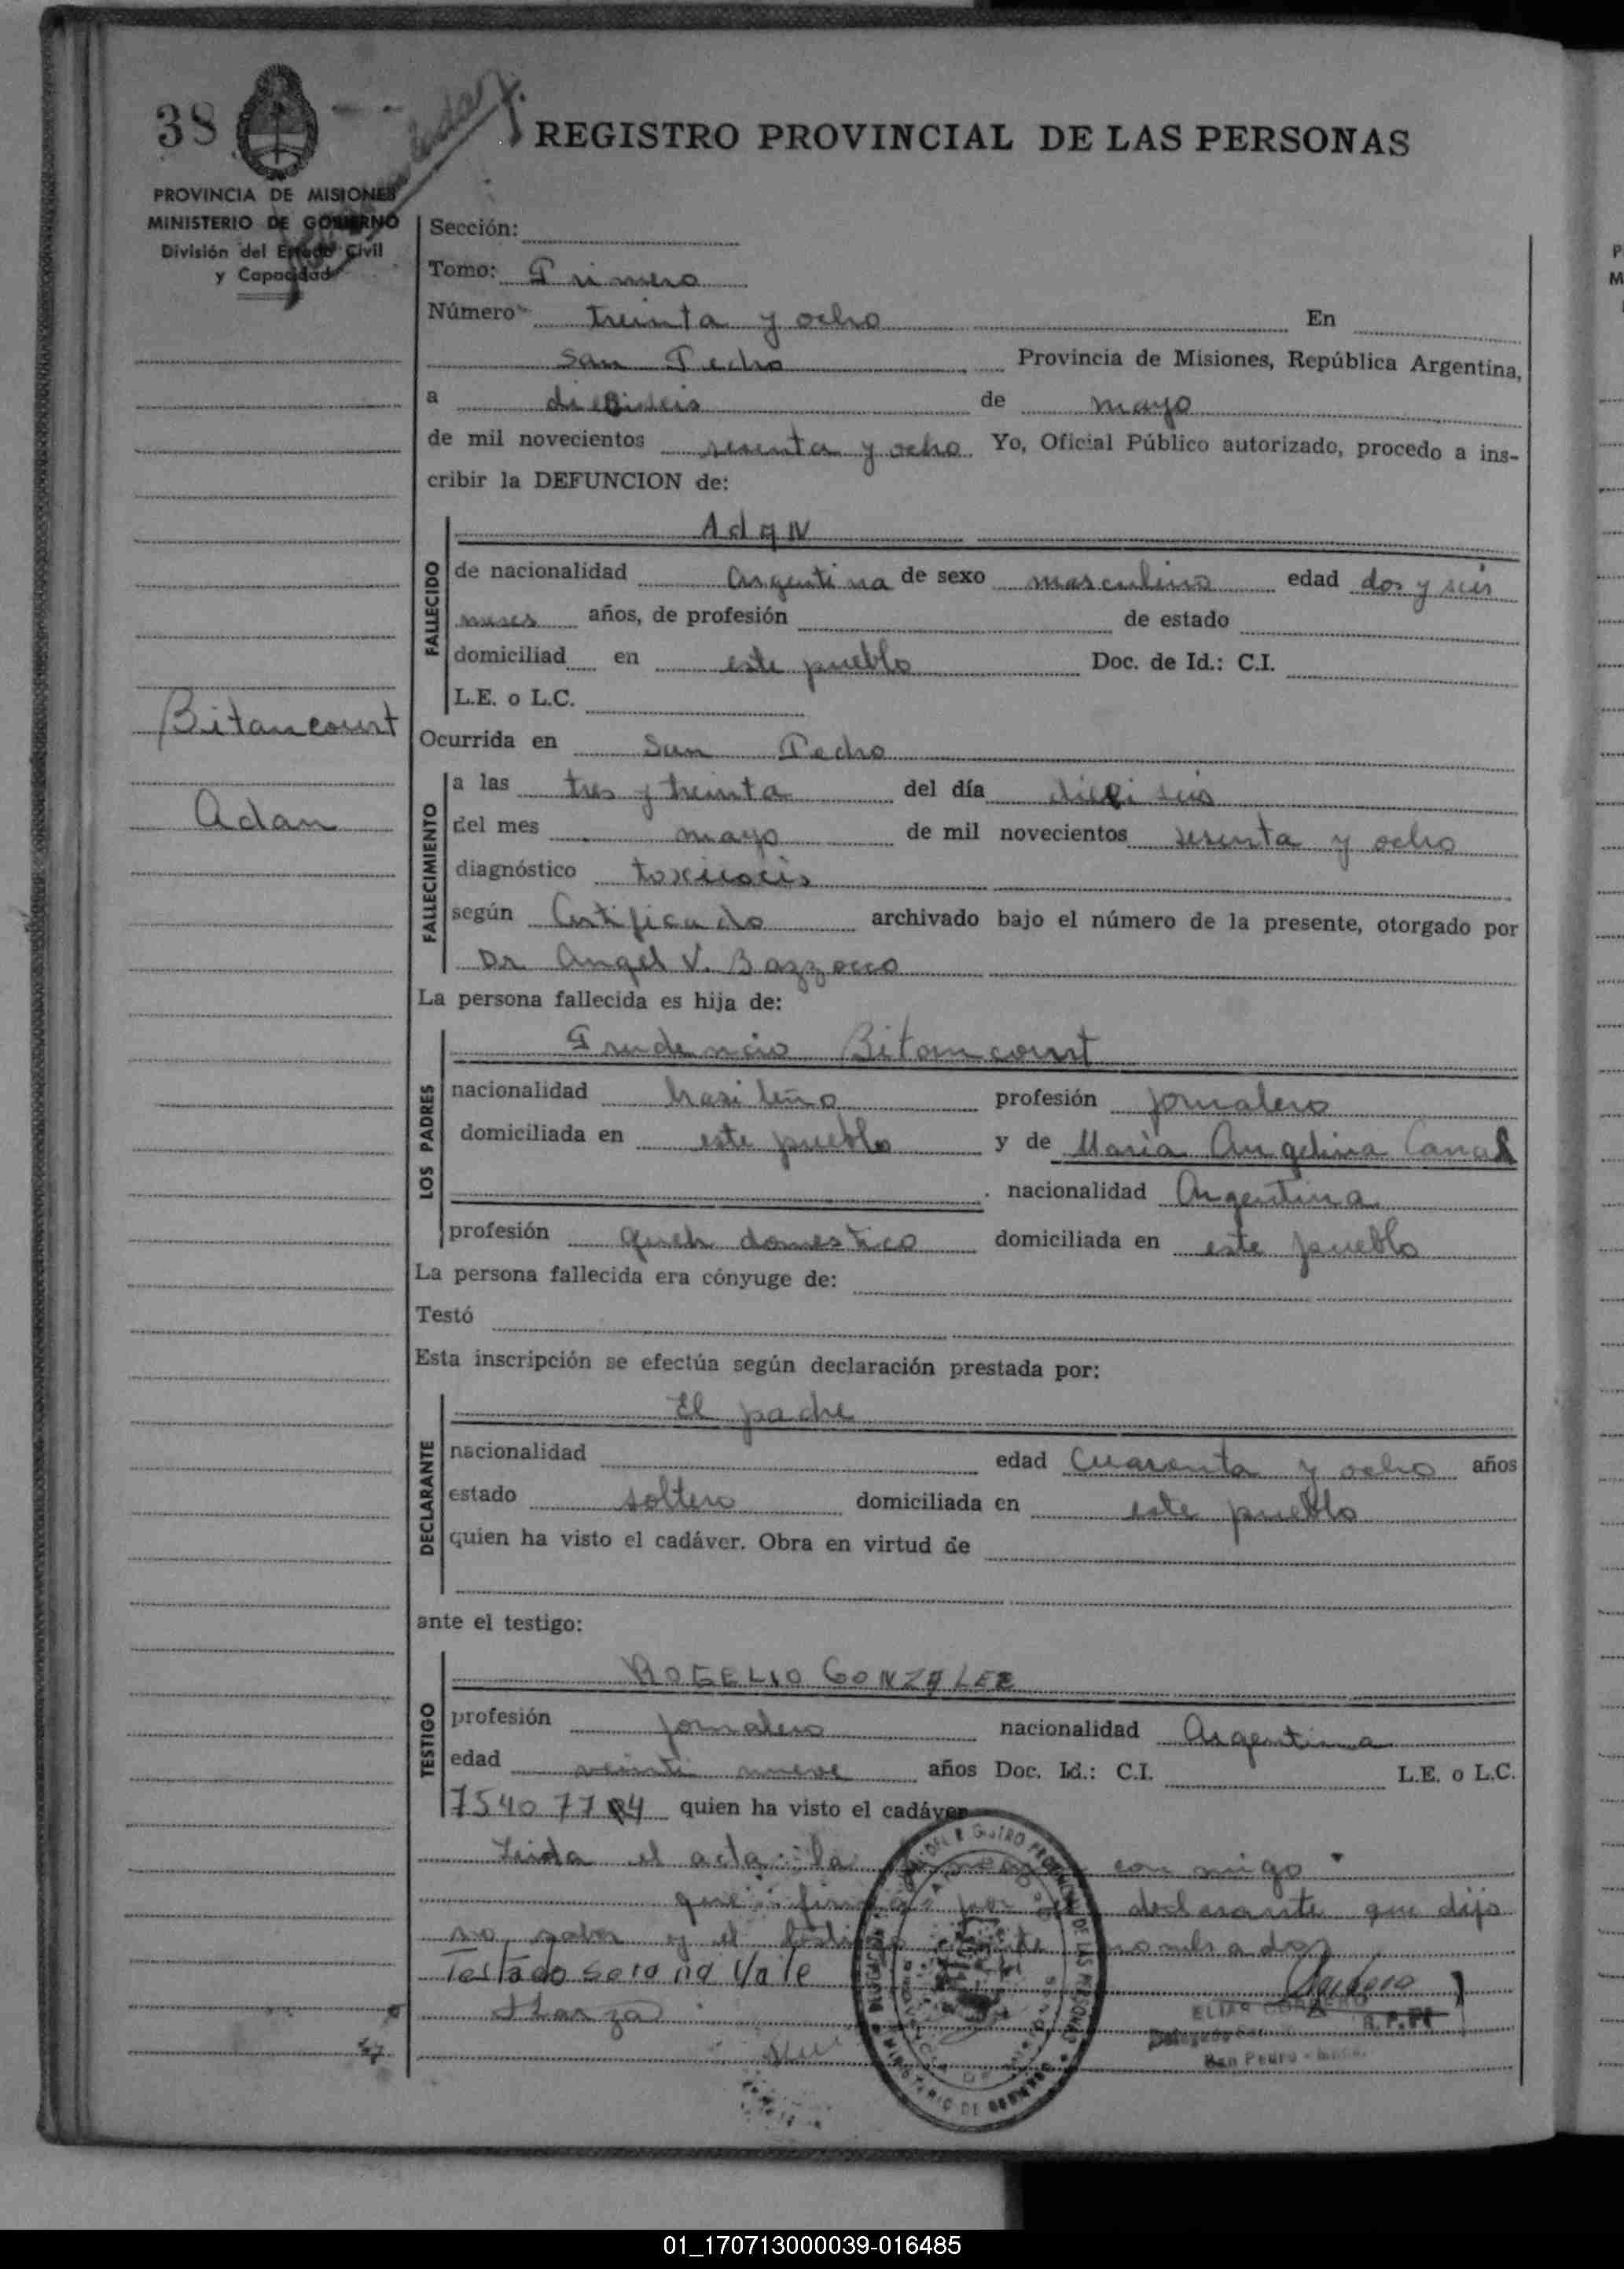 38
REGISTRO PROVINCIAL DE LAS PERSONAS
PROVINCIA DE MISIONES
MINISTERIO DE GOBIERNO
División del Estado Civil
y Capacidad
Sección:
Tomo: Primero
Número treinta y ocho En
San Pedro Provincia de Misiones, República Argentina,
a dieciseis de mayo
de mil novecientos sesenta y ocho Yo, Oficial Público autorizado, procedo a ins-
cribir la DEFUNCION de:
FALLECIDO
Adan
de nacionalidad Argentina de sexo masculino edad dos y seis
meses años, de profesión de estado
domiciliad en este pueblo Doc. de Id.: C.I.
L.E. o L.C.
Bitancourt
Adan
Ocurrida en San Pedro
FALLECIMIENTO
a las tres y treinta del día dieciseis
del mes mayo de mil novecientos sesenta y ocho
diagnóstico toxicocis
según Certificado archivado bajo el número de la presente, otorgado por
Dr Angel V. Bazzocco
La persona fallecida es hija de:
LOS PADRES
Prudencio Bitancourt
nacionalidad brasileño profesión jornalero
domiciliada en este pueblo y de Maria Angelina
nacionalidad Argentina
profesión domestico domiciliada en este pueblo
La persona fallecida era cónyuge de:
Testó
Esta inscripción se efectúa según declaración prestada por:
DECLARANTE
El padre
nacionalidad edad Cuarenta y ocho años
estado soltero domiciliada en este pueblo
quien ha visto el cadáver. Obra en virtud de
ante el testigo:
TESTIGO
ROGELIO GONZALEZ
profesión jornalero nacionalidad Argentina
edad veinti nueve años Doc. Id.: C.I. L.E. o L.C.
quien ha visto el cadáver
Leida el acta la con migo
que por declarante que dijo
no saber y el nombrado
Testado no Vale
ELIAS
San Pedro
MINISTERIO DE GOBIERNO
01_170713000039-016485